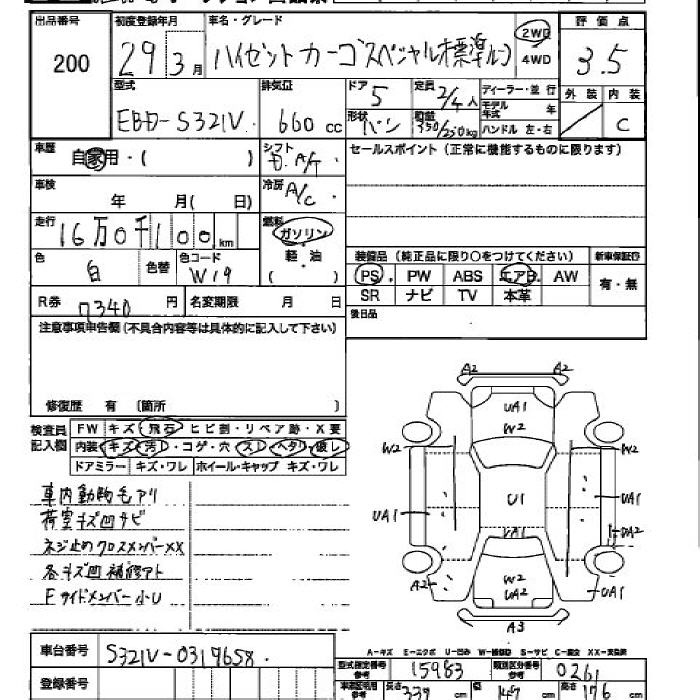 出品番号 初度登録年月 車名・グレード 評価点
200 29年3月 ハイゼットカーゴスペシャル(標準ルーフ) 2WD 4WD 3.5
型式 排気量 ドア 5 定員 2/4人 ディーラー・並行 外装 内装
EBD-S321V 660cc 形状 バン 350/250kg モデル年式 年 ハンドル 左・右 C
車歴 自家用・( ) シフト A/T セールスポイント(正常に機能するものに限ります)
車検 年 月( 日) 冷房 A/C
走行 16万0千100km 燃料 ガソリン 軽・油 ( )
色 白 色替 色コード W19 装備品(純正品に限り〇をつけてください) 新車保証書
PS PW ABS エアB AW 有・無
R券 7340円 名変期限 月 日 SR ナビ TV 本革
注意事項申告欄(不具合内容等は具体的に記入して下さい) 後日品
修復歴 有 〔箇所
検査員記入欄 FW キズ・飛石・ヒビ割・リペア跡・X要
内装・キズ・汚レ・コゲ・穴・スレ・ヘタリ・破レ
ドアミラー キズ・ワレ ホイール・キャップ キズ・ワレ
車内動物毛アリ
荷室キズ凹サビ
ネジ止めクロスメンバーXX
各キズ凹補修アト
Fサイドメンバー小U
A2 A2
UA1
W2
W2 W2
U1
UA1 UA1
UA1 UA2
A2 W2 UA1
UA2
A3
A-キズ E-エクボ U-凹み W-補修跡 S-サビ C-腐食 XX-交換済
車台番号 S321V-0319658 型式指定番号 参考 15983 類別区分番号 参考 0261
登録番号 長さ 339cm 幅 147cm 高さ 176cm